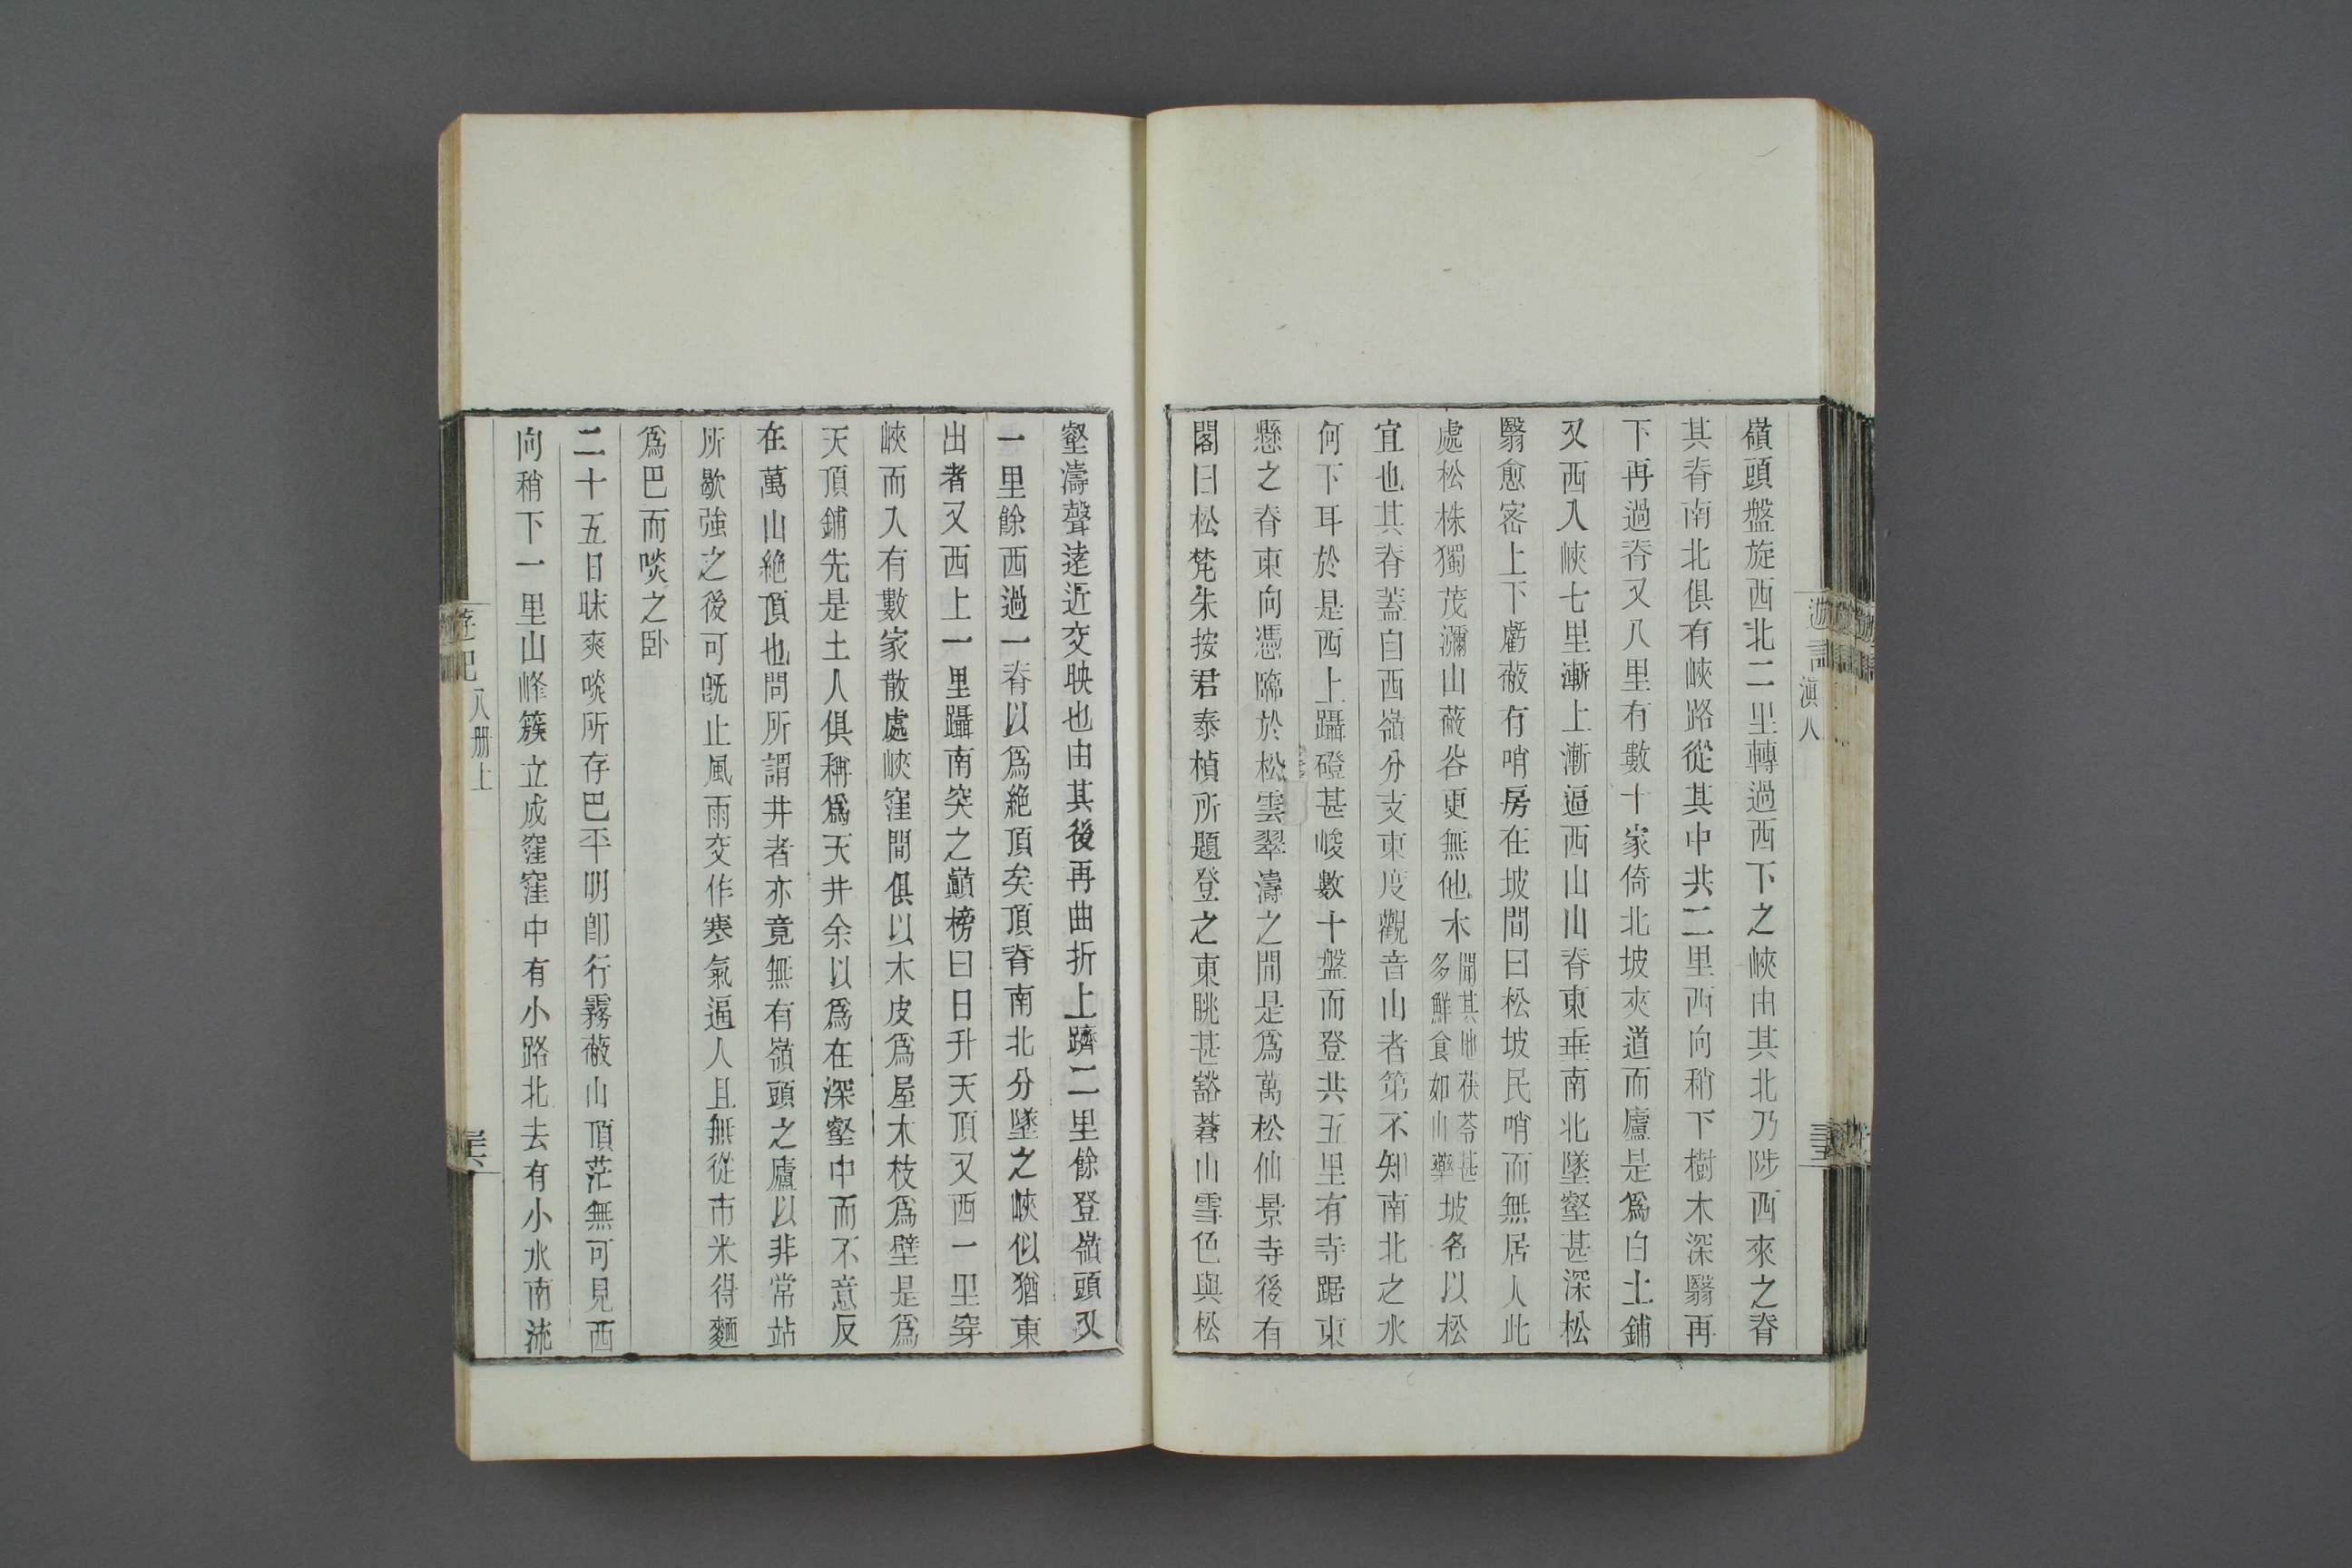 嶺頭盤旋西北二里轉過西下之峽由其北乃陟西來之脊
其脊南北俱有峽路從其中共二里西向稍下樹木深翳再
下再過脊又八里有數十家倚北坡夾道而廬是爲白土鋪
又西入峽七里漸上漸逼西山山脊東垂南北墜壑甚深松
翳愈密上下虧蔽有哨房在坡間曰松坡民哨而無居人此
處松株獨茂瀰山蔽谷更無他木聞其地茯苓甚多鮮食如山藥坡名以松
宜也其脊蓋自西嶺分支東度觀音山者第不知南北之水
何下耳於是西上躡磴甚峻數十盤而登共五里有寺踞東
懸之脊東向憑臨於松雲翠濤之間是爲萬松仙景寺後有
閣曰松梵朱按君泰楨所題登之東眺甚豁蒼山雪色與松
遊記 滇八
壑濤聲遠近交映也由其後再曲折上躋二里餘登嶺頭又
一里餘西過一脊以爲絕頂矣頂脊南北分墜之峽似猶東
出者又西上一里躡南突之巔榜曰日升天頂又西一里穿
峽而入有數家散處峽窪間俱以木皮爲屋木枝爲壁是爲
天頂鋪先是土人俱稱爲天井余以爲在深壑中而不意反
在萬山絕頂也問所謂井者亦竟無有嶺頭之廬以非常站
所歇強之後可旣止風雨交作寒氣逼人且無從市米得麵
爲巴而啖之卧
二十五日昧爽啖所存巴平明卽行霧蔽山頂茫無可見西
向稍下一里山峰簇立成窪窪中有小路北去有小水南流
遊記 八册上